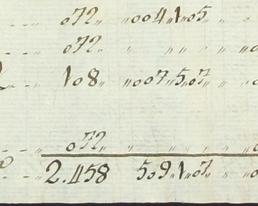 072,, ,,004,,1,,05,,
072,, ,, ,, ,, ,,
108,, ,,007,,5,,07,,
072,, ,, ,, ,, ,,
2.458 509,,1,,07,,